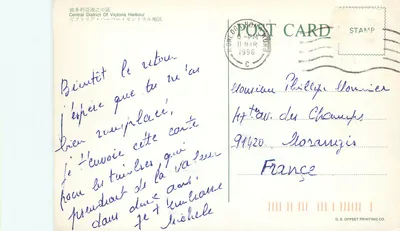 維多利亞港之中區
Central District Of Victoria Harbour
ビクトリア・ハーバー・セントラル地区
POST CARD
STAMP
1996
C
Bientôt le retour
j'espère que tu m'as
bien remplacé,
je t'envoie cette carte
pour les timbres qui
prendront de la valeur
dans deux ans.
je t'embrasse
Michele
Monsieur Philippe Monnier
av. des Champs
91420 Morangis
France
D. S. OFFSET PRINTING CO.